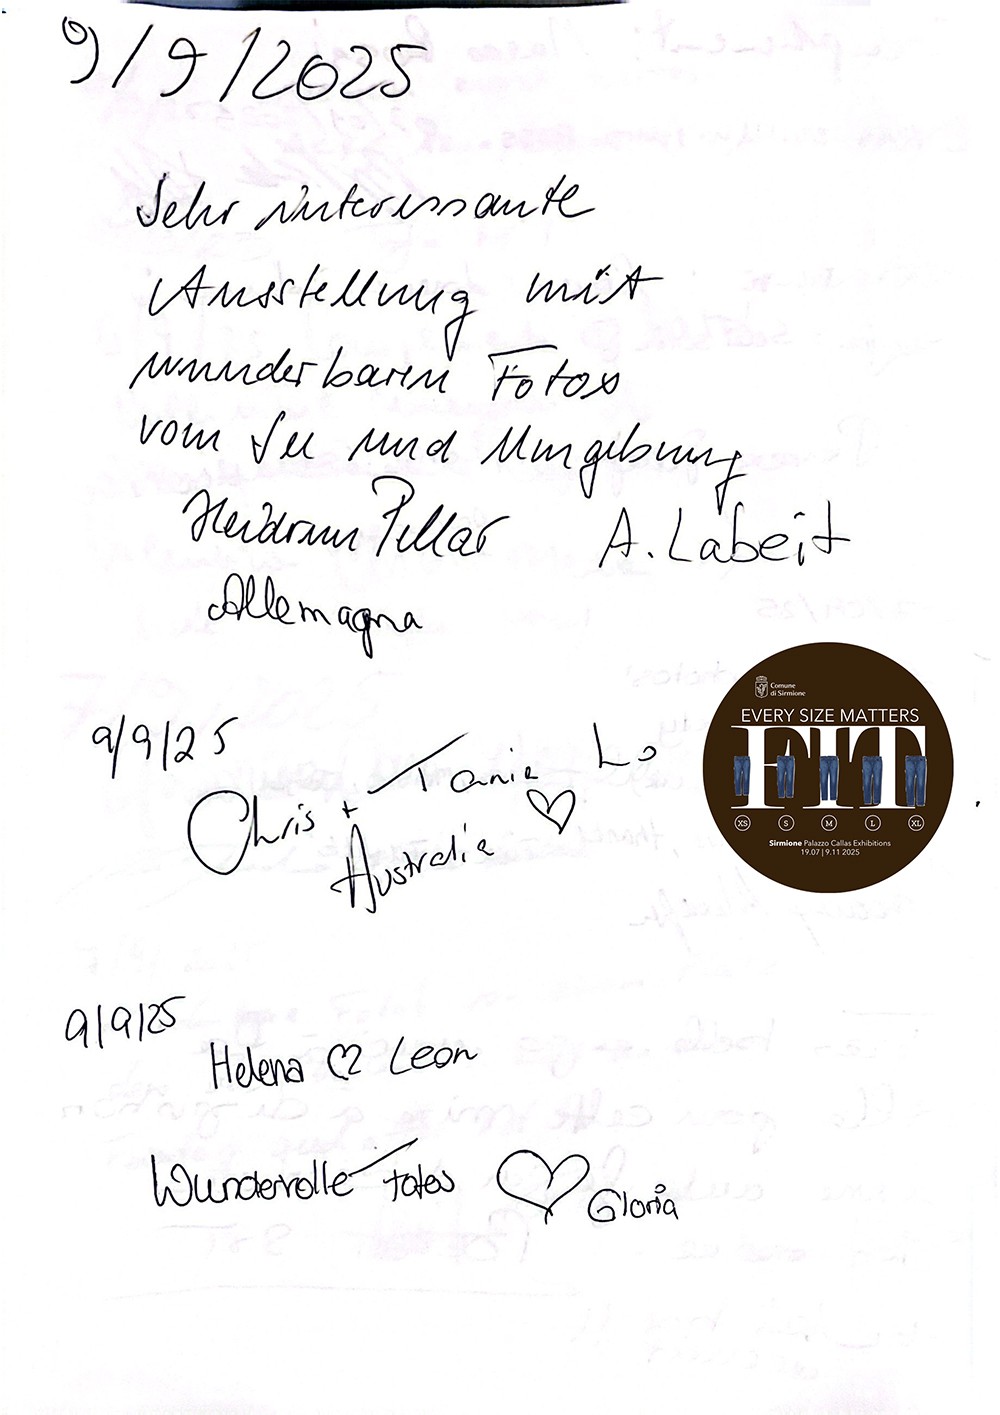 9/9/2025
Sehr interessante
Ausstellung mit
wunderbaren Fotos
vom See und Umgebung
Heidrun Pillar A. Labeit
Allemagna
9/9/25
Chris + Tania Lo
Australia
Comune
di Sirmione
EVERY SIZE MATTERS
FIT
XS S M L XL
Sirmione Palazzo Callas Exhibitions
19.07 | 9.11 2025
9/9/25
Helena Leon
Wundervolle Fotos Gloria